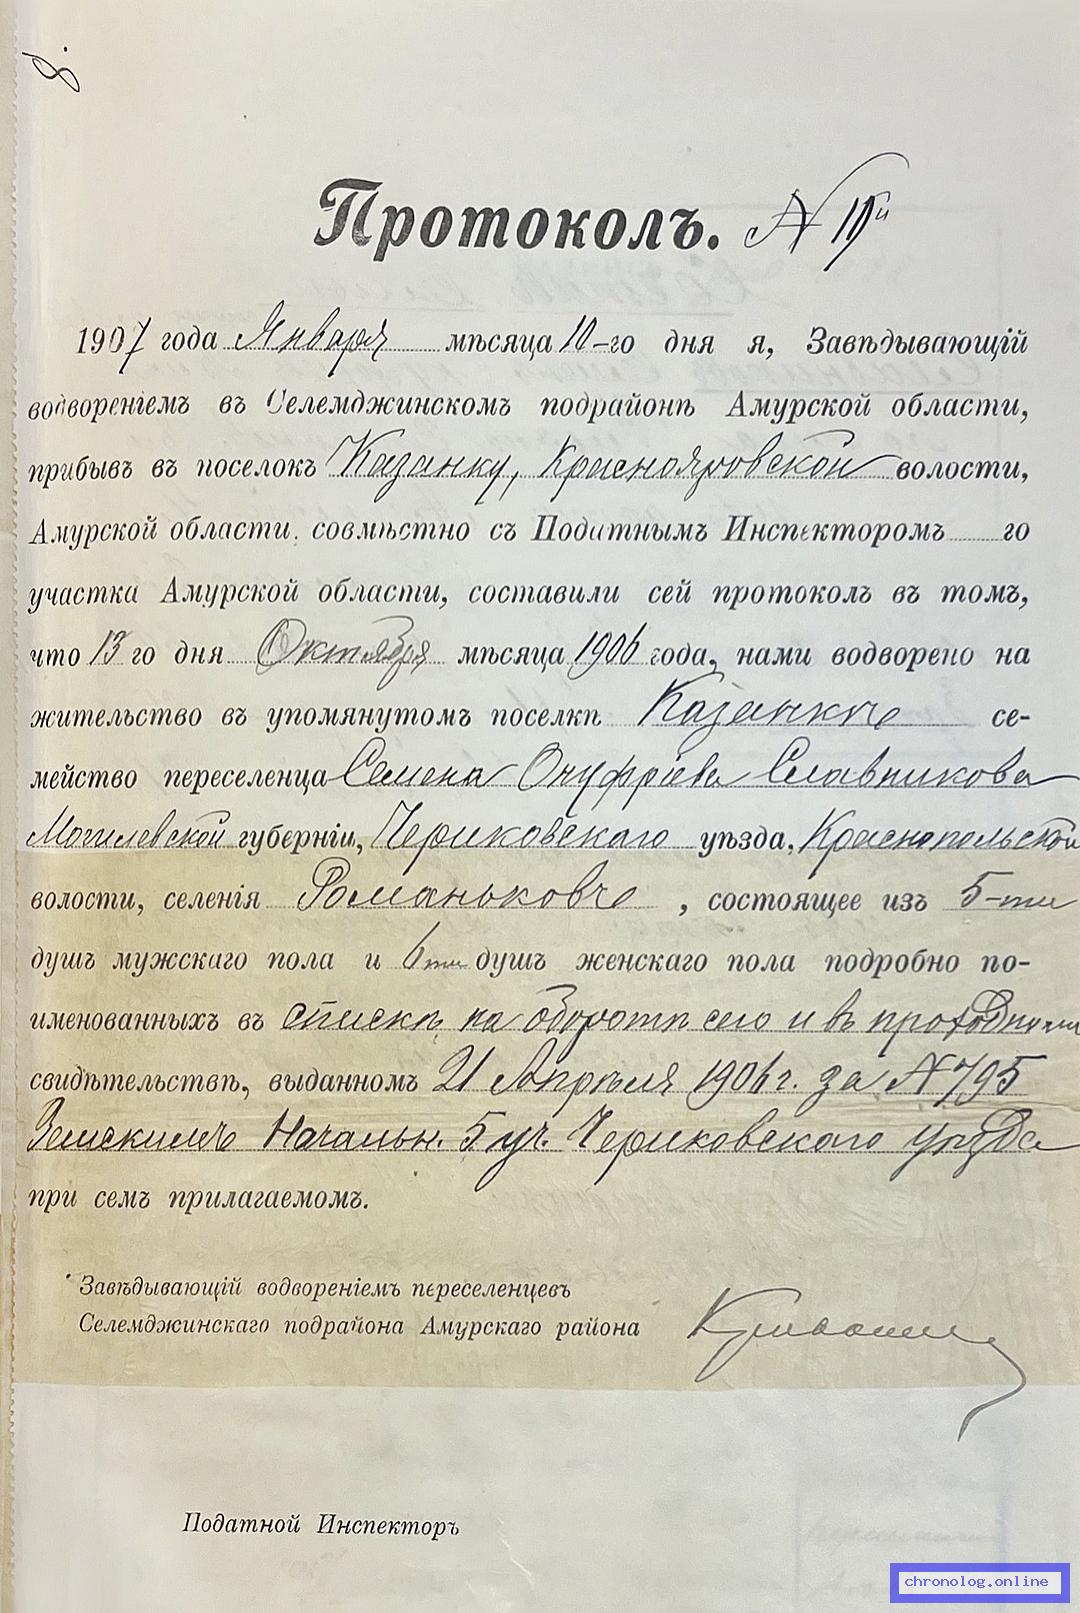 8.
Протоколъ. № 11й
1907 года Января мѣсяца 10-го дня я, Завѣдывающій
водвореніемъ въ Селемджинскомъ подрайонѣ Амурской области,
прибывъ въ поселокъ Казанку, Краснояровской волости,
Амурской области, совмѣстно съ Податнымъ Инспекторомъ го
участка Амурской области, составили сей протоколъ въ томъ,
что 13 го дня Октября мѣсяца 1906 года, нами водворено на
жительство въ упомянутомъ поселкѣ Казанкѣ се-
мейство переселенца Семена Онуфріева Славникова
Могилевской губерніи, Чериковскаго уѣзда, Краснопольской
волости, селенія Романьковъ, состоящее изъ 5-ти
душъ мужскаго пола и 6ти душъ женскаго пола подробно по-
именованныхъ въ спискѣ на оборотѣ сего и въ проходномъ
свидѣтельствѣ, выданномъ 21 Апрѣля 1906 г. за № 795
Земскимъ Начальн. 5 уч. Чериковскаго уѣзда
при семъ прилагаемомъ.
Завѣдывающій водвореніемъ переселенцевъ
Селемджинскаго подрайона Амурскаго района
Податной Инспекторъ
chronolog.online